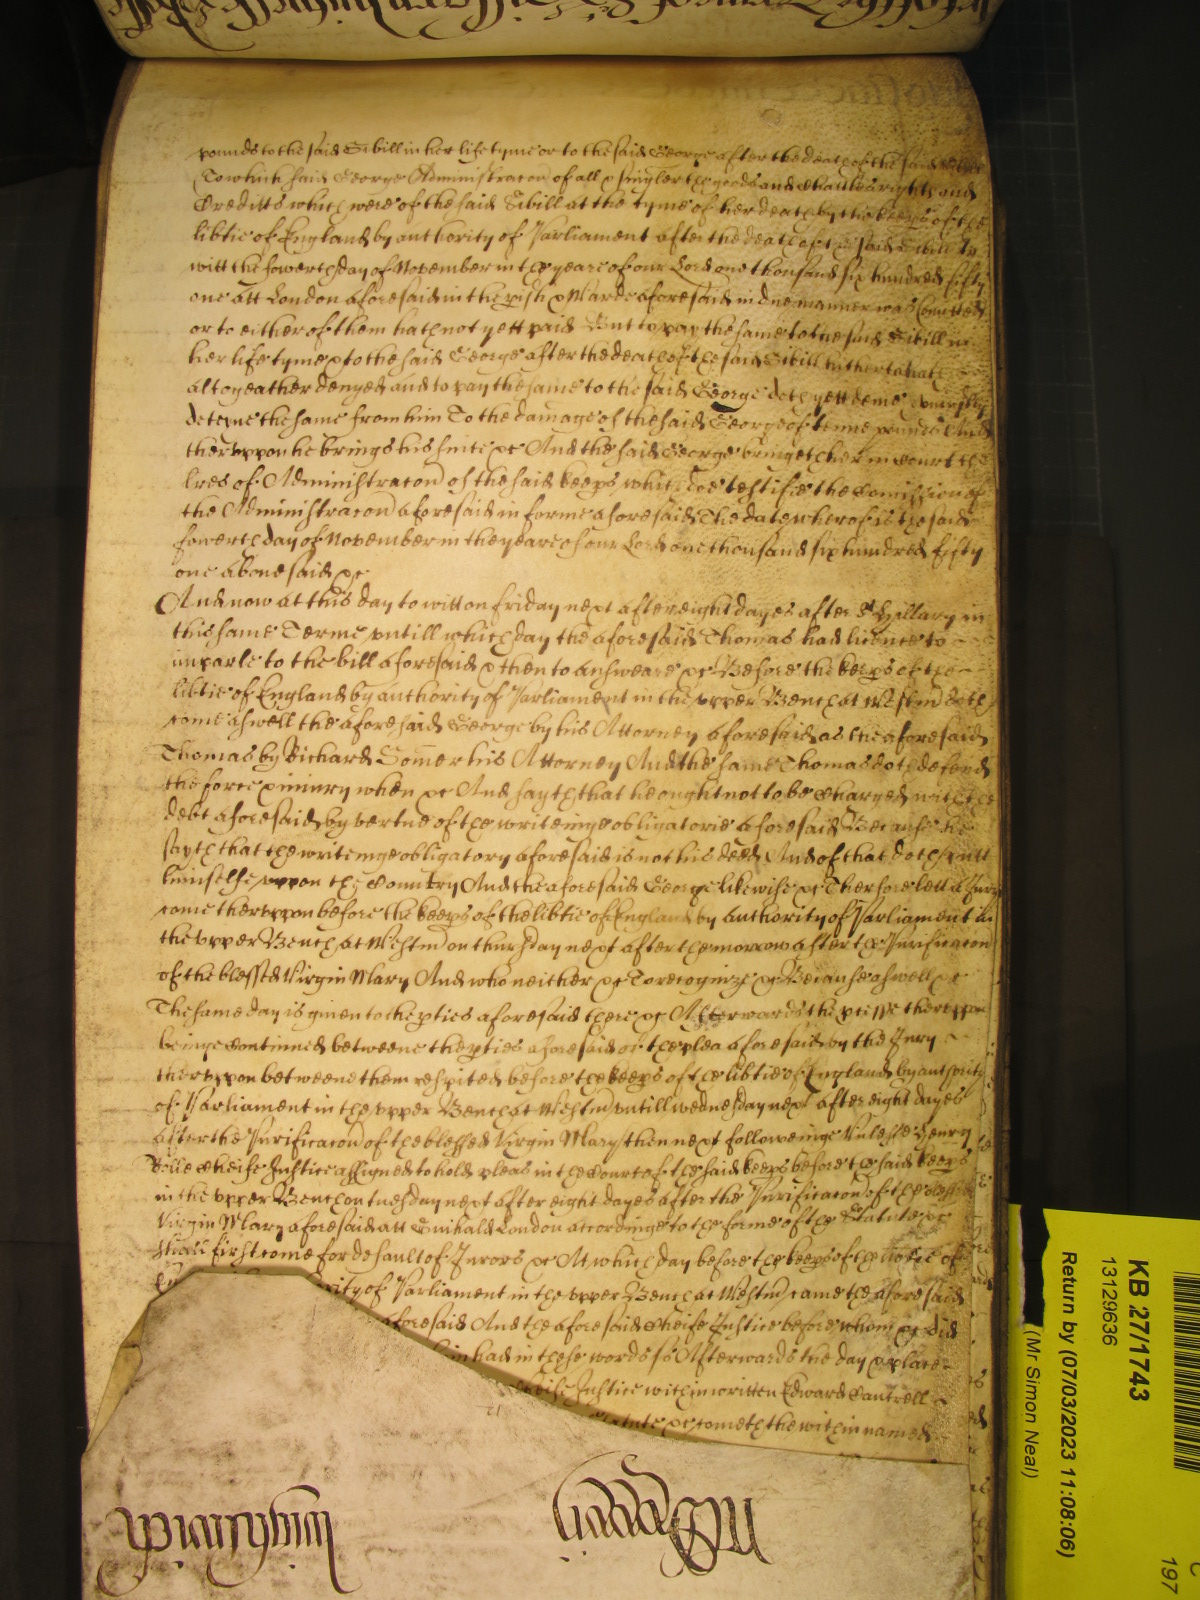 pounds to the said Sibill in her life tyme or to the said George after the death of the said Sibill
To which said George Administracon of all & singler the goods and Chattles rights and
Creditts which were of the said Sibill at the tyme of her death by the keeps of the
libtie of England by authority of Parliament after the death of the said Sibill to
witt the fowerth day of November in the yeare of our Lord one thousand six hundred fifty
one att London aforesaid in the pish & Warde aforesaid in due manner was Comitted
or to either of them hath not yett paid But to pay the same to the said Sibill in
her life tyme & to the said George after the death of the said Sibill hitherto hath
altogeather denyed and to pay the same to the said George doth yett denie & uniustly
deteyne the same from him To the damage of the said George of tenne pounds And
thervppon he brings his suite &c And the said George bringeth here in Court the
lres of Administracon of the said keeps which doe testifie the Comission of
the Administracon aforesaid in forme aforesaid The date wherof is the said
fowerth day of November in the yeare of our Lord one thousand six hundred fifty
one abovesaid &c
And now at this day to witt on friday next after eight dayes after St Hillary in
this same Terme vntill which day the aforesaid Thomas had licence to
imparle to the bill aforesaid & then to answeare &c Before the keeps of the
libtie of England by authority of Parliament in the vpper Bench at Westm doth
come aswell the aforesaid George by his Attorney aforesaid as the aforesaid
Thomas by Richard Somer his Attorney And the same Thomas doth defend
the force & iniury when &c And sayth that he ought not to be Charged with the
debt aforesaid by vertue of the writeinge obligatorie aforesaid Because he
sayth that the writeinge obligatory aforesaid is not his deed And of that doth putt
himselfe vppon the Country And the aforesaid George likewise &c Therfore lett a Jury
come thervppon before the keeps of the libtie of England by authority of Parliament in
the vpper Bench at Westm on thursday next after the morrow after the Purificacon
of the blessed Virgin Mary And who neither &c To recognize &c Because aswell &c
The same day is given to the pties aforesaid there &c Afterwards the pcesse thervppon
beinge Continued betweene the pties aforesaid of the plea aforesaid by the Jury
thervppon betweene them respited before the keeps of the libtie of England by authority
of Parliament in the vpper Bench at Westm vntill wednesday next after eight dayes
after the Purificacon of the blessed Virgin Mary then next followeinge Vnlesse Henry
Rolle Cheife Justice assigned to hold pleas in the Court of the said keeps before the said keeps
in the vpper Bench on tuesday next after eight dayes after the Purificacon of the blessed
Virgin Mary aforesaid att Guihald London accordinge to the forme of the Statute &c
shall first come for default of Jurors &c At which day before the keeps of the libtie of
ity of Parliament in the vpper Bench at Westm came the aforesaid
aforesaid And the aforesaid Cheife Justice before whom &c did
him had in these words ss Afterwards the day & place
Cheife Justice within written Edward Cantrell
Statute &c cometh the within named
KB 27/1743
13129636
(Mr Simon Neal)
Return by (07/03/2023 11:08:06)
197